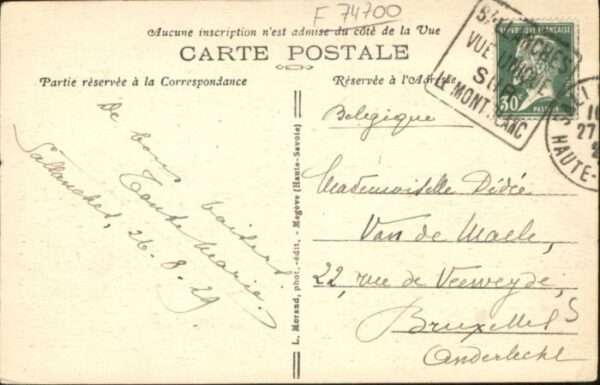 F 74700
Aucune inscription n'est admise du côté de la Vue
CARTE POSTALE
Partie réservée à la Correspondance
Réservée à l'Adresse
De bons baisers
Tante Marie.
Sallanches, 26.8.29
L. Morand, phot.-édit. - Megève (Haute-Savoie)
VUE UNIQUE
SUR
LE MONT BLANC
REPUBLIQUE FRANÇAISE
30c
PASTEUR
27
HAUTE-
Belgique
Mademoiselle Dédée
Van de Maele,
22, rue de Veeweyde,
Bruxelles
Anderlecht